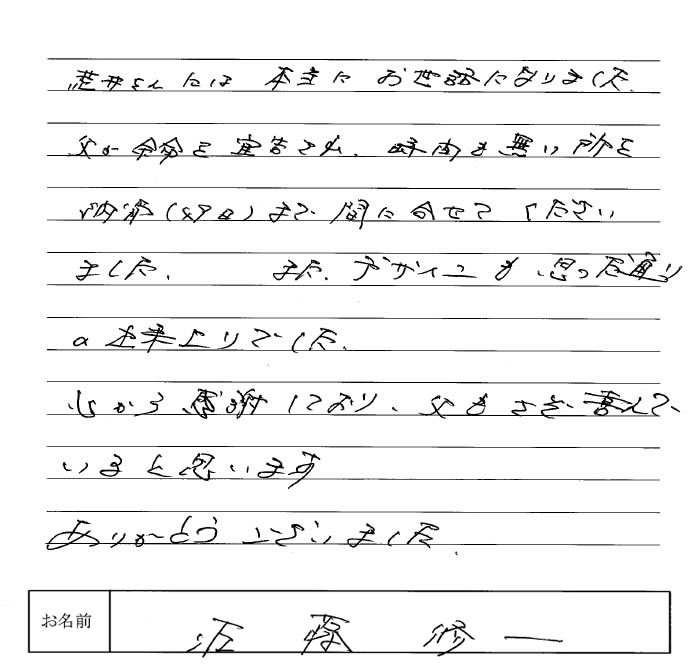 荒井さんには 本当に お世話になりました.
父が余命を宣告され、時間も無い所を
納骨(49日)まで間に合せてください
ました、 また、デザインも、思った通り
の出来上りでした、
心から感謝しており、父もさぞ喜んで、
いると思います
ありがとうございました.
お名前 近藤 修一